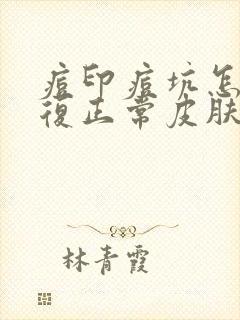 痘印痘坑怎
復正常皮肤
林青霞